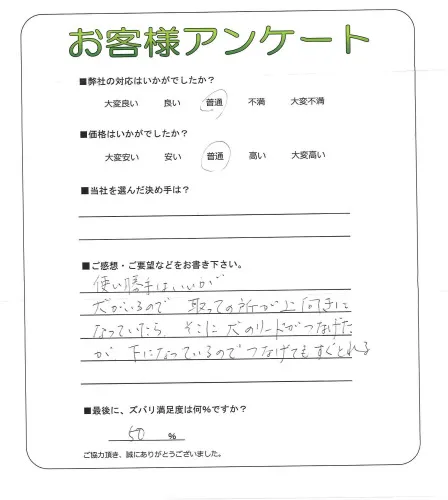 お客様アンケート
■弊社の対応はいかがでしたか？
大変良い 良い 普通 不満 大変不満
■価格はいかがでしたか？
大変安い 安い 普通 高い 大変高い
■当社を選んだ決め手は？
■ご感想・ご要望などをお書き下さい。
使い勝手はいいが
犬がいるので 取っての所が上向きに
なっていたら そこに犬のリードがつなげた
が 下になっているのでつなげてもすぐとれる
■最後に、ズバリ満足度は何％ですか？
50 ％
ご協力頂き、誠にありがとうございました。